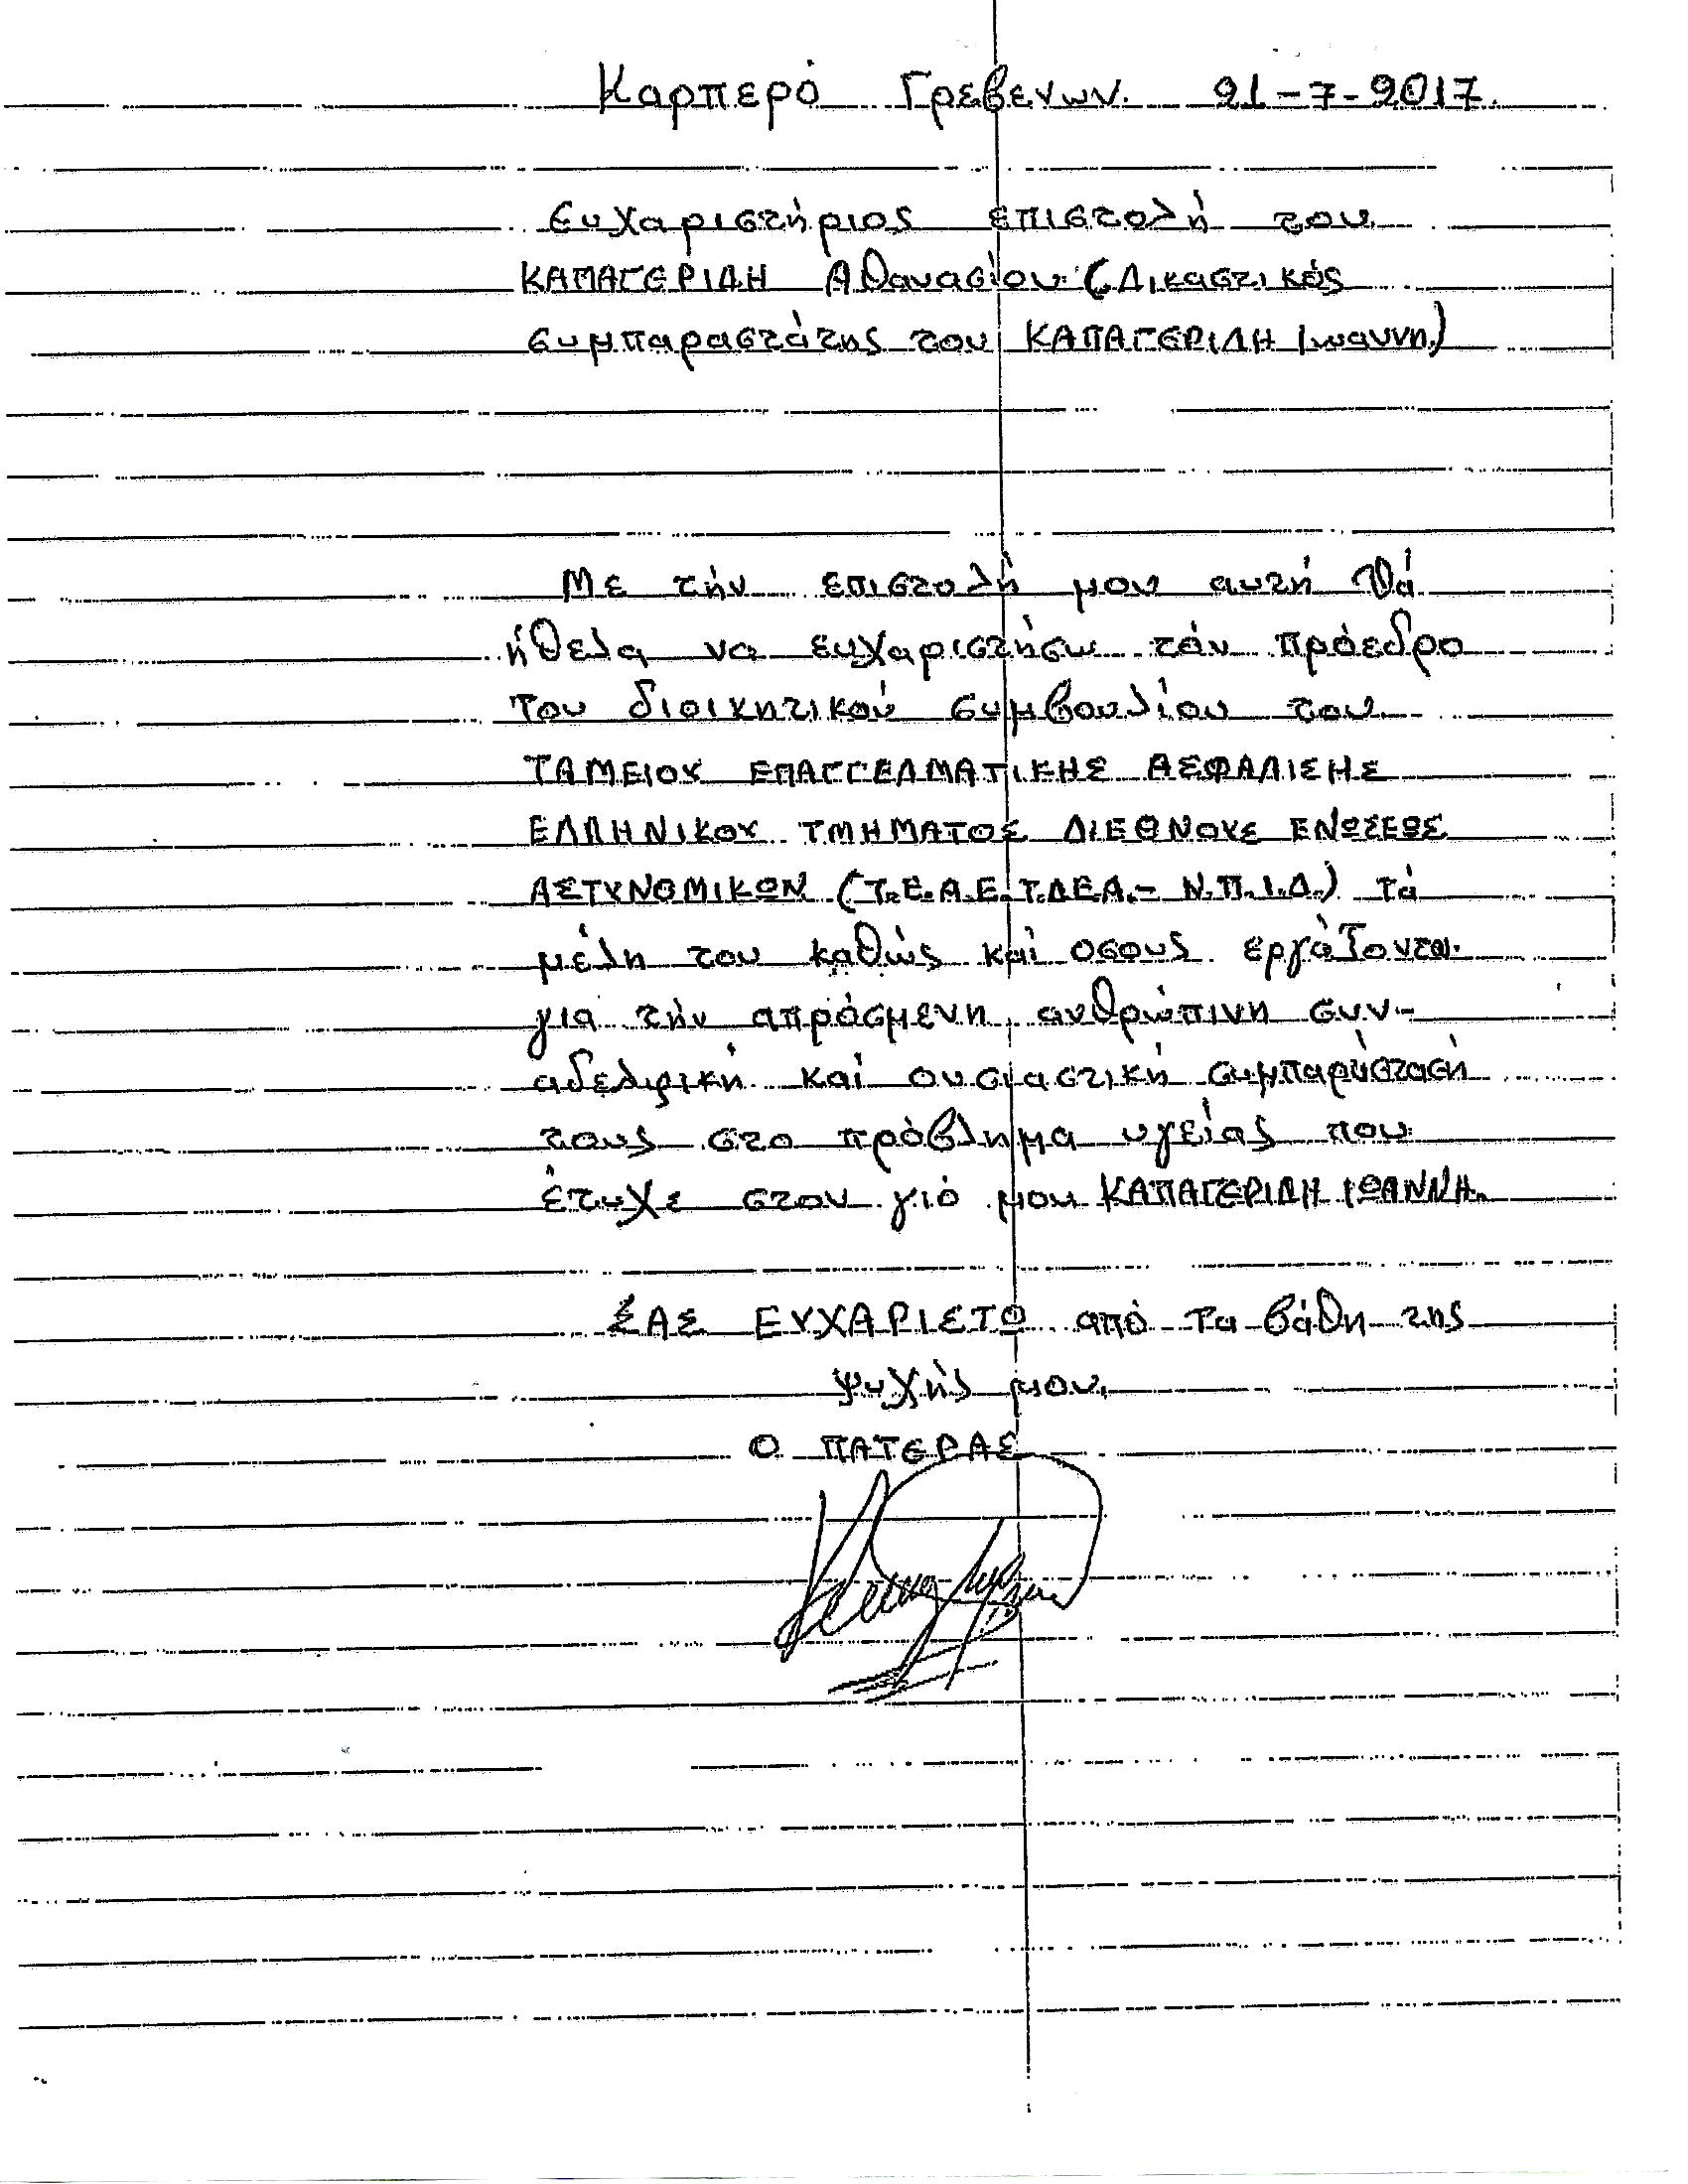 Καρπερό Γρεβενων. 21-7-2017.
Ευχαριστήριος επιστολή του
ΚΑΠΑΓΕΡΙΔΗ Αθανασίου (Δικαστικός
συμπαραστάτης του ΚΑΠΑΓΕΡΙΔΗ Ιωαννη)
Με τήν επιστολή μου αυτή θά
ήθελα να ευχαριστήσω τόν πρόεδρο
Του διοικητικού συμβουλίου του
ΤΑΜΕΙΟΥ ΕΠΑΓΓΕΛΜΑΤΙΚΗΣ ΑΣΦΑΛΙΣΗΣ
ΕΛΛΗΝΙΚΟΥ ΤΜΗΜΑΤΟΣ ΔΙΕΘΝΟΥΣ ΕΝΩΣΕΩΣ
ΑΣΤΥΝΟΜΙΚΩΝ (Τ.Ε.Α.Ε.Τ.ΔΕΑ.- Ν.Π.Ι.Δ.) τά
μέλη του καθώς καί οσους εργάζονται
για τήν απρόσμενη, ανθρώπινη συν-
αδελφική καί ουσιαστική συμπαράσταση
τους στο πρόβλημα υγείας που
έτυχε στον γιό μου ΚΑΠΑΓΕΡΙΔΗ ΙΩΑΝΝΗ.
ΣΑΣ ΕΥΧΑΡΙΣΤΩ από τα βάθη της
ψυχής μου.
Ο ΠΑΤΕΡΑΣ